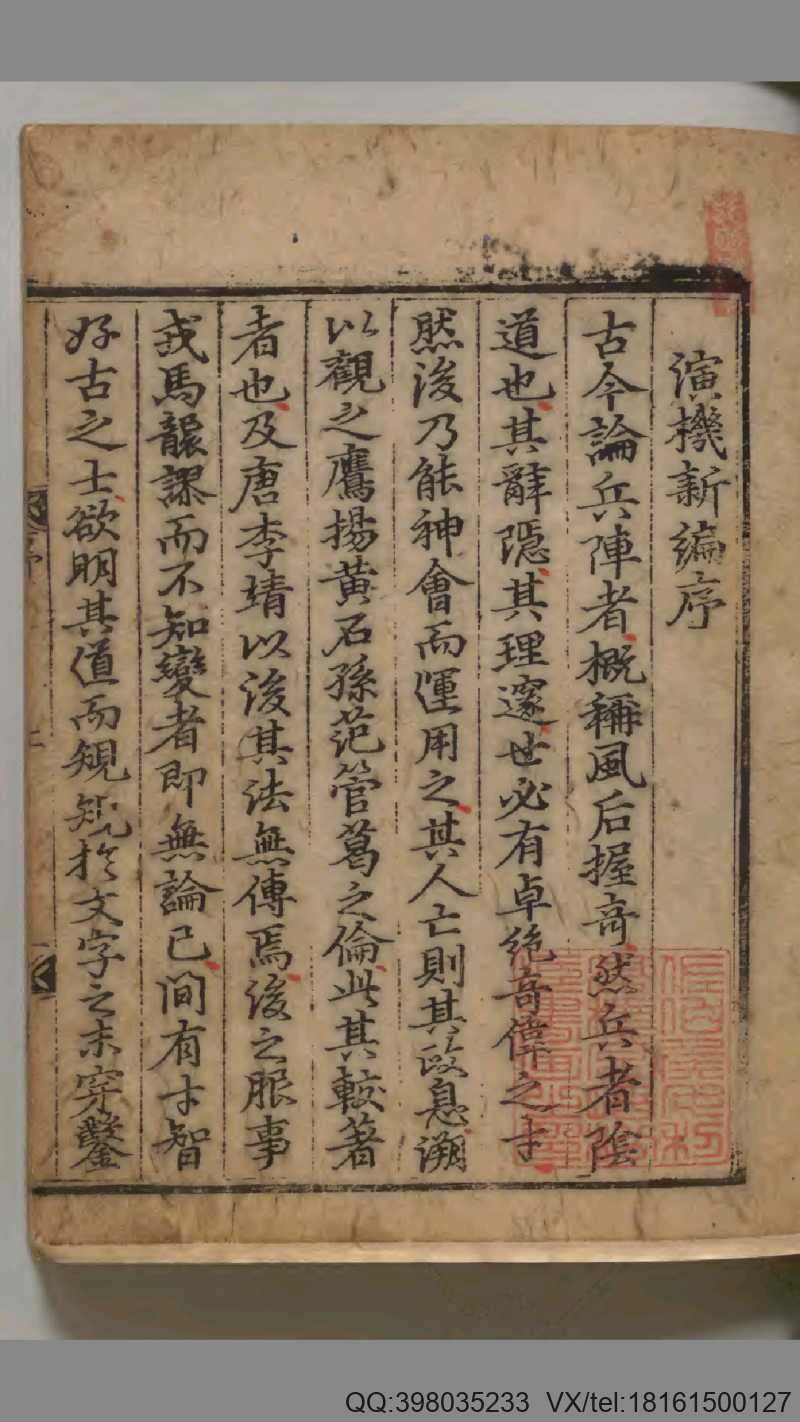 演機新編序
古今論兵陣者概稱風后握竒然兵者陰
道也其辭隱其理邃世必有卓絶竒偉之士
然後乃能神會而運用之其人亡則其政息溯
以觀之鷹揚黃石孫范管葛之倫此其較著
者也及唐李靖以後其法無傳焉後之服事
戎馬襲謬而不知變者即無論已间有才智
好古之士欲明其道而規規於文字之末穿鑿
QQ:398035233 VX/tel:18161500127